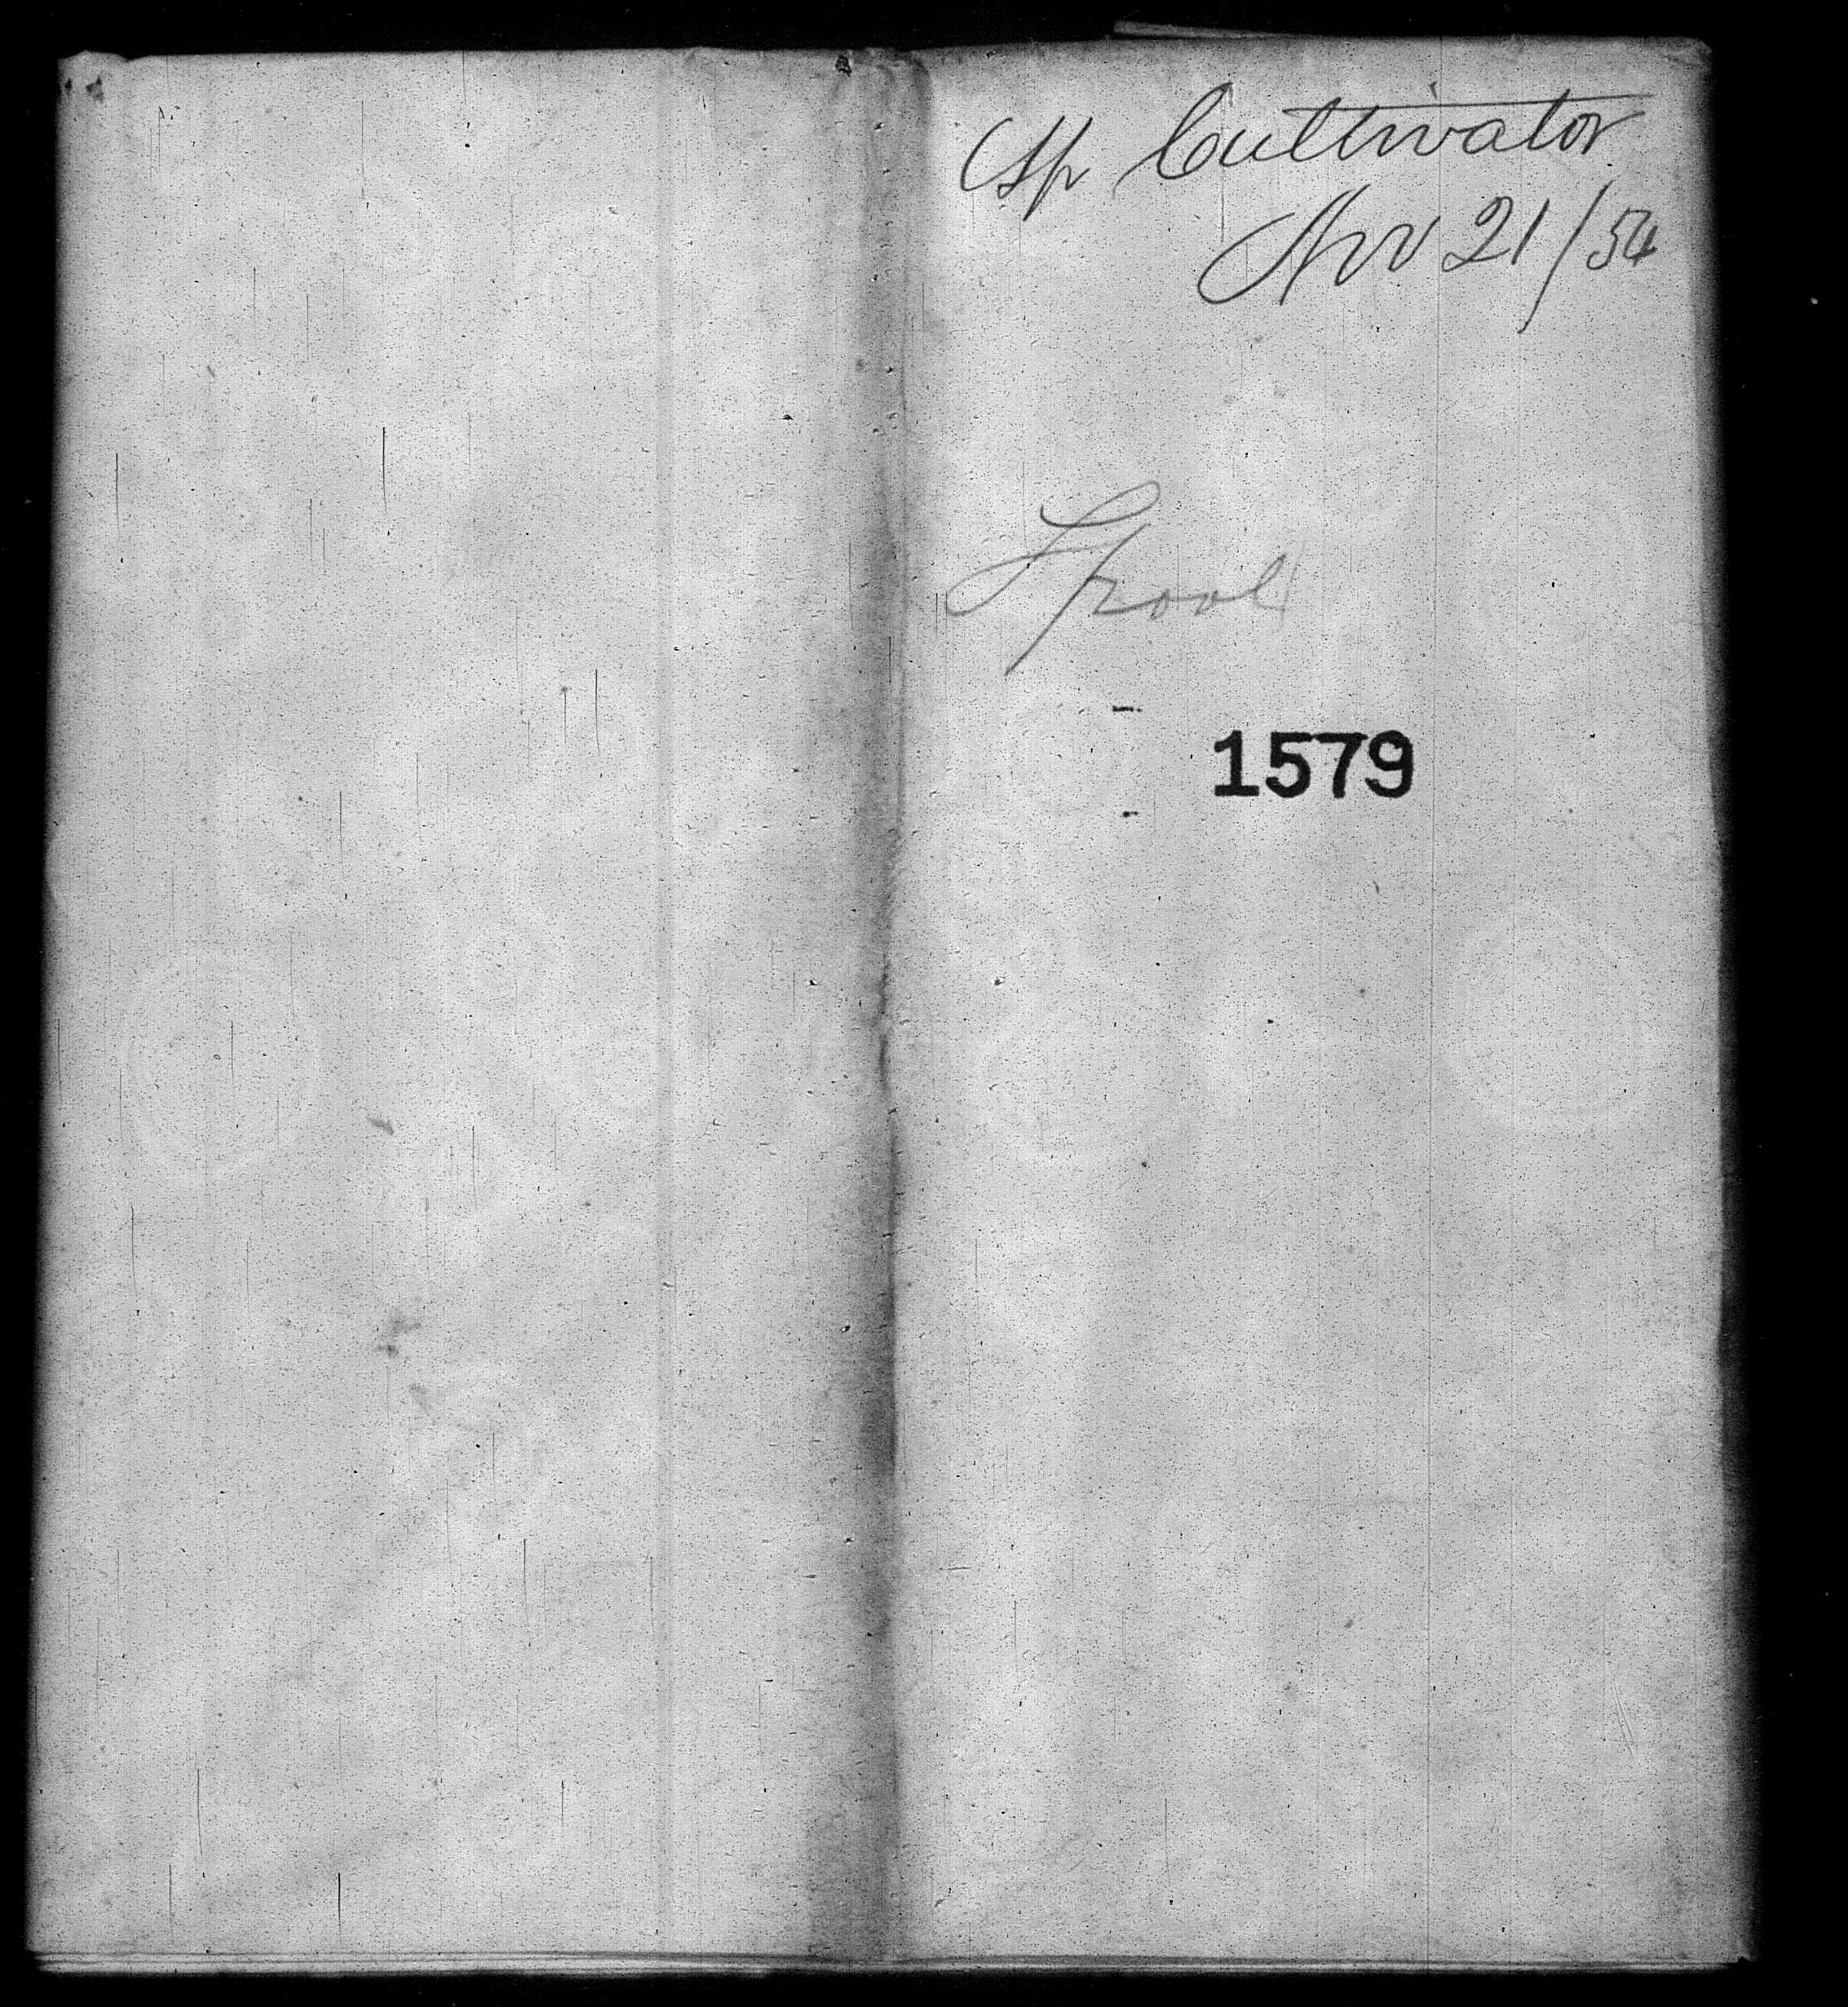 Sp Cultivator
Nov 21/54
Lpool
1579